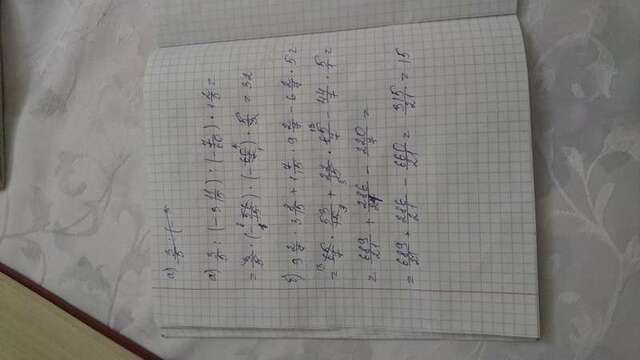 а) 3/5 : (
а) 3/5 : (-3 11/15) : (-7/60) · 1 2/3 =
= 3/5 · (-56/15) · (-60/7) · 5/3 = 32
б) 9 2/7 · 3 8/15 + 1 7/15 · 9 2/7 - 6 2/7 · 5 =
= 65/7 · 53/15 + 22/15 · 65/7 - 44/7 · 5/7 =
= 689/21 + 286/21 - 220/7 =
= 689/21 + 286/21 - 660/21 = 315/21 = 15